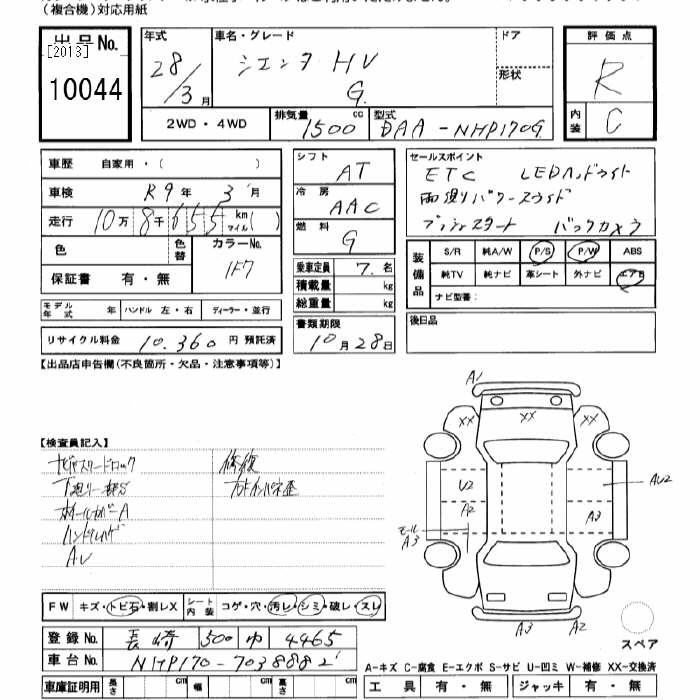 (複合機)対応用紙
出品No.
[2013]
10044
年式 28/3月
車名・グレード シエンタ HV G
ドア
形状
2WD・4WD
排気量 1500 cc
型式 DAA-NHP170G
評価点 R
内装 C
車歴 自家用・( )
車検 R9年 3月
走行 10万8千655 km マイル( )
色
色替
カラーNo. 1F7
保証書 有・無
モデル年式 年 ハンドル 左・右 ディーラー・並行
リサイクル料金 10,360円 預託済
シフト AT
冷房 AAC
燃料 G
乗車定員 7名
積載量 kg
総重量 kg
書類期限 10月28日
セールスポイント
ETC LEDヘッドライト
両側パワースライド
プッシュスタート バックカメラ
装備品 S/R 純A/W P/S P/W ABS
純TV 純ナビ 革シート 外ナビ エアB
ナビ型番:
後日品
【出品店申告欄(不良箇所・欠品・注意事項等)】
【検査員記入】
修復
ホイールカバーA
ハンドルハゲ
AU
A1
XX XX XX
U2
A2
AU2
A3
モール A3
A3 A2
スペア
FW キズ・トビ石・割レX シート内装 コゲ・穴・汚レ・シミ・破レ・スレ
登録No. 長崎 500 ゆ 4465
車台No. NHP170-7038882
A-キズ C-腐食 E-エクボ S-サビ U-凹ミ W-補修 XX-交換済
車庫証明用 長さ cm 幅 cm 高さ cm
工具 有・無 ジャッキ 有・無